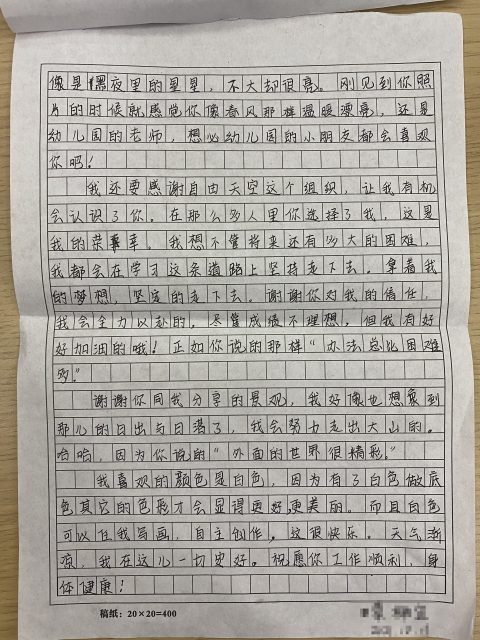 像是黑夜里的星星，不大却很亮。刚见到你照
片的时候就感觉你像春风那样温暖漂亮，还是
幼儿园的老师，想必幼儿园的小朋友都会喜欢
你吧！
我还要感谢自由天空这个组织，让我有机
会认识了你。在那么多人里你选择了我，这是
我的荣幸。我想不管将来还有多大的困难，
我都会在学习这条道路上坚持走下去。拿着我
的梦想，坚定的走下去。谢谢你对我的信任，
我会全力以赴的，尽管成绩不理想，但我有好
好加油的哦！正如你说的那样“办法总比困难
多。”
谢谢你同我分享的景观，我好像也想象到
那儿的日出与日落了，我会努力走出大山的。
哈哈，因为你说的“外面的世界很精彩。”
我喜欢的颜色是白色，因为有了白色做底
色其它的色彩才会显得更好更美丽。而且白色
可以任我写画，自主创作。这很快乐。天气渐
凉，我在这儿一切安好。祝愿你工作顺利，身
体健康！
稿纸：20×20=400